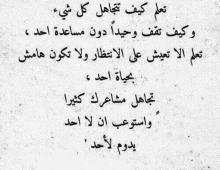 تعلم كيف تتجاهل كل شيء
وكيف تقف وحيداً دون مساعدة احد ،
تعلم الا تعيش على الانتظار ولا تكون هامش
بحياة احد ،
تجاهل مشاعرك كثيرا
ً واستوعب ان لا احد
يدوم لأحد '